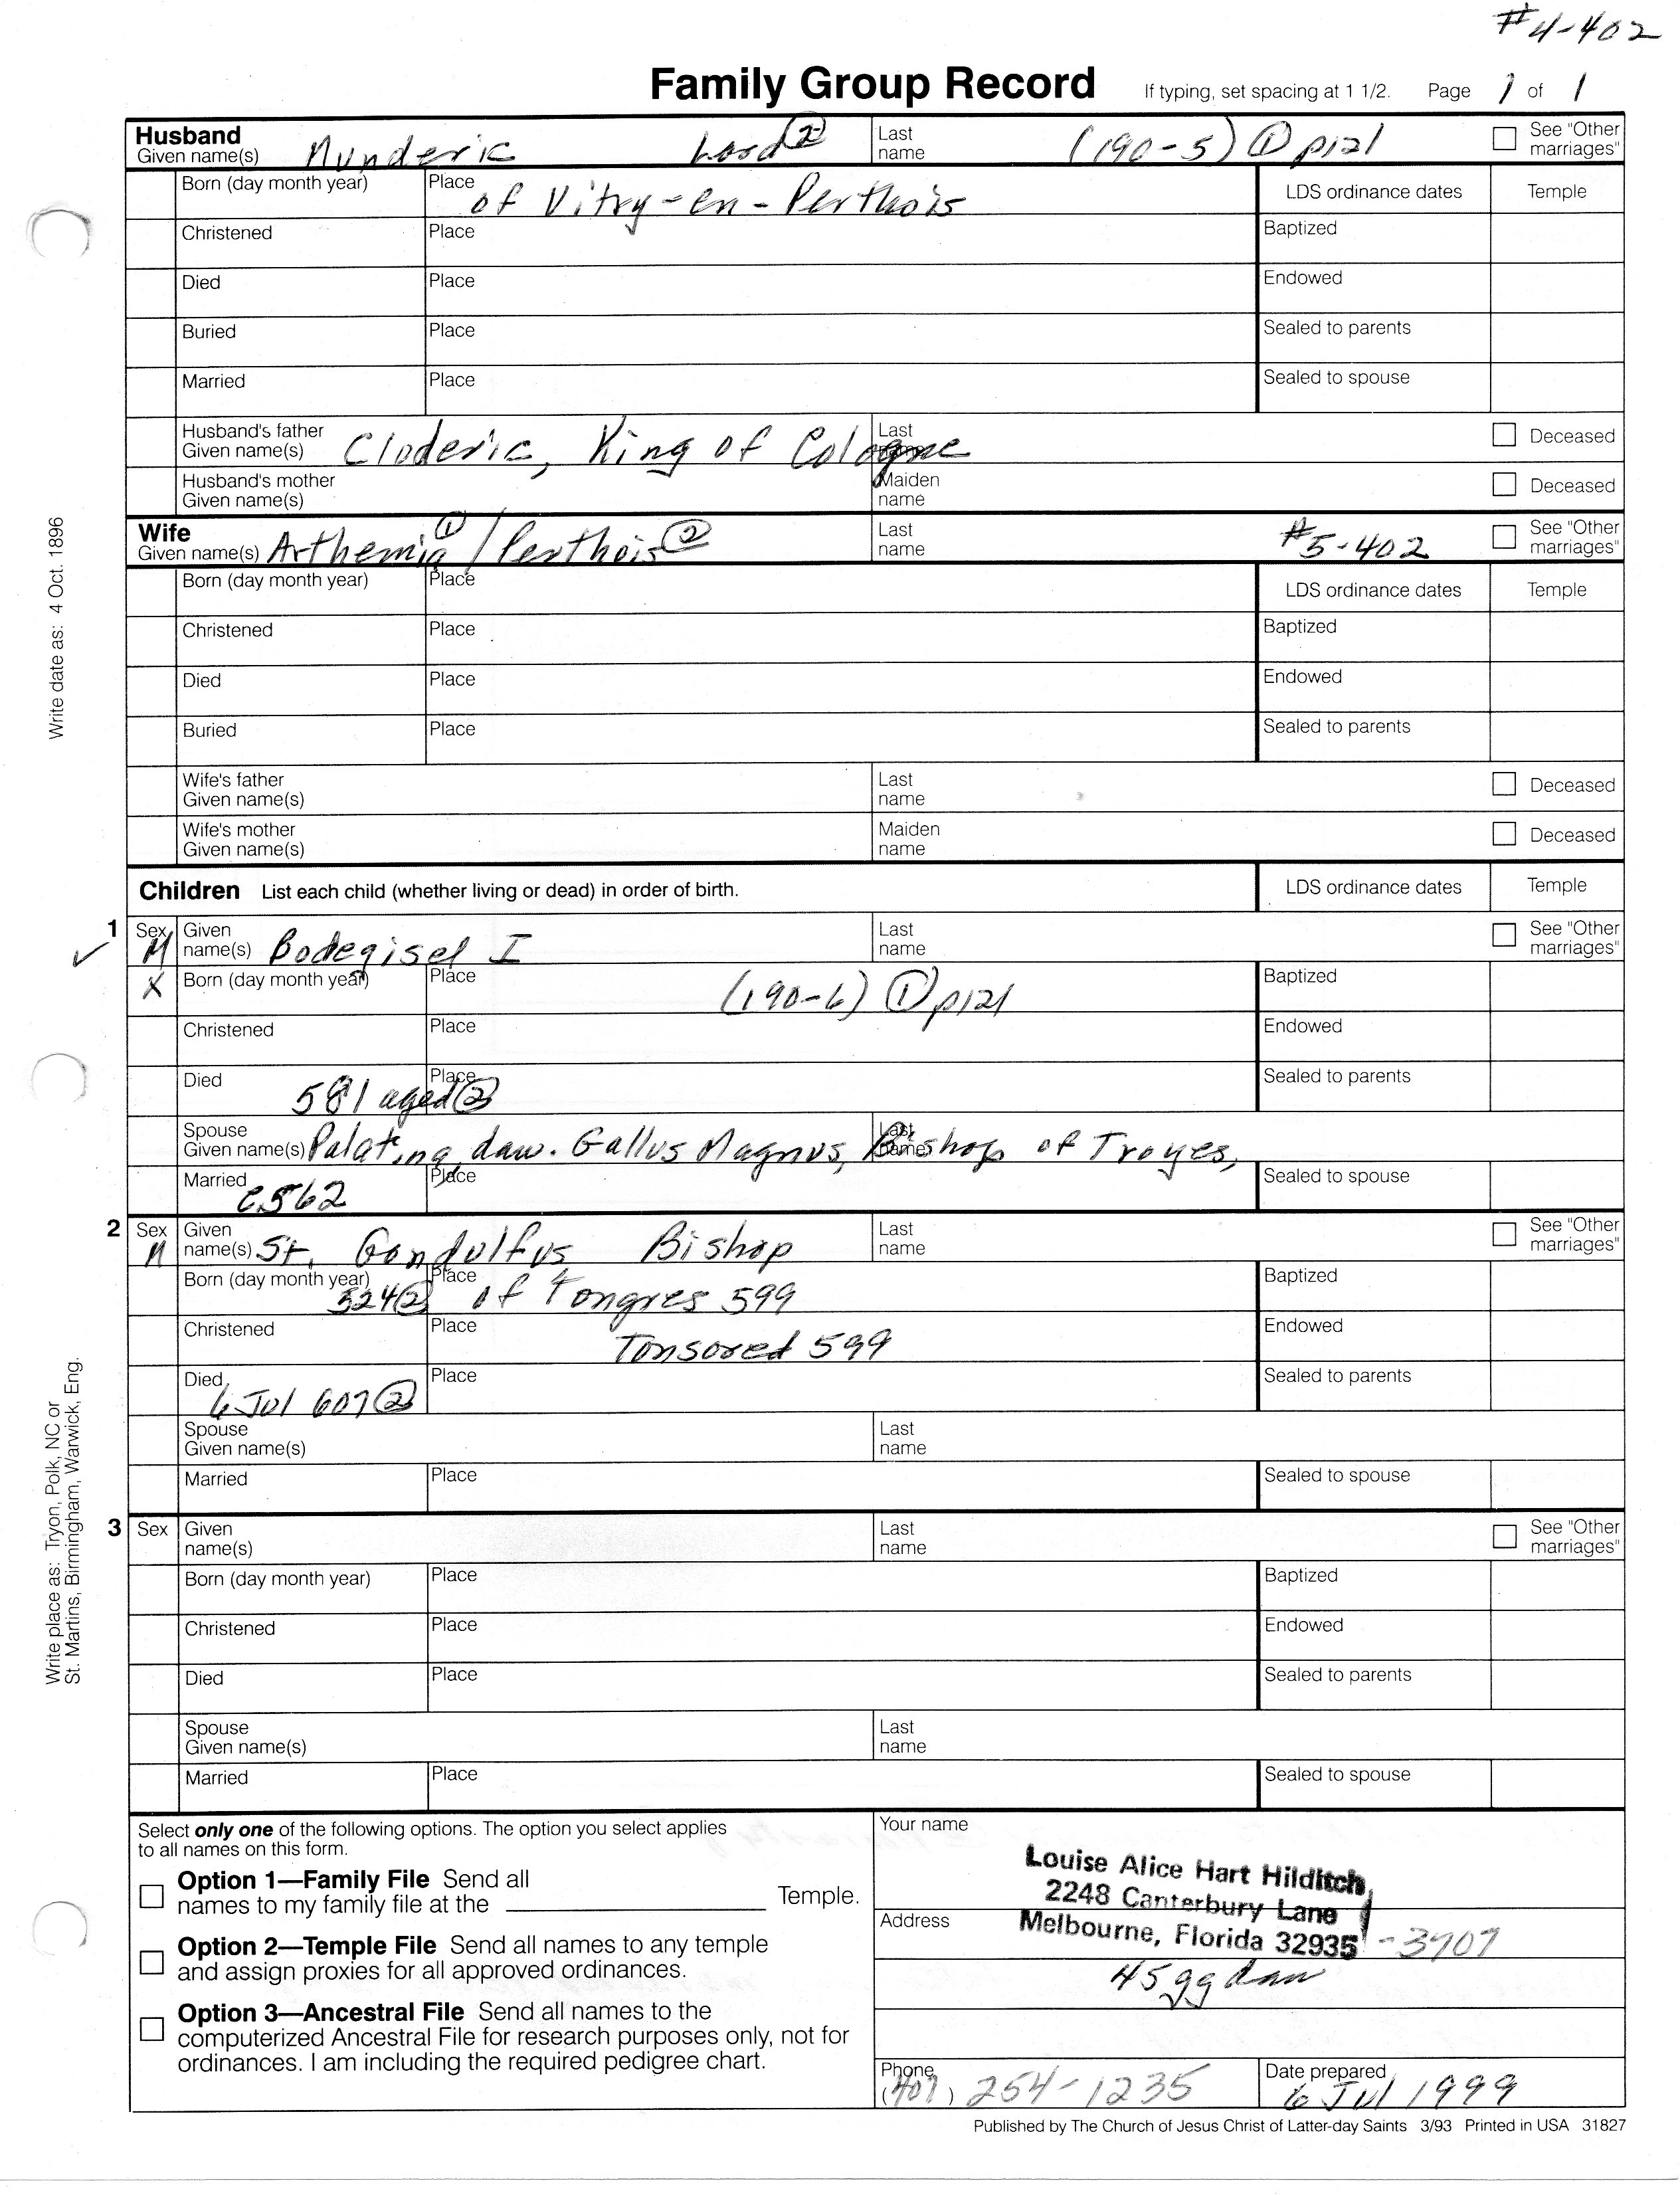 #4-402
Family Group Record If typing, set spacing at 1 1/2. Page 1 of 1
Husband
Given name(s) Munderic Lord ② Last name (190-5) ① p121 See "Other marriages"
Born (day month year) Place of Vitry-en-Perthois LDS ordinance dates Temple
Christened Place Baptized
Died Place Endowed
Buried Place Sealed to parents
Married Place Sealed to spouse
Husband's father Given name(s) Cloderic, King of Cologne Last name Deceased
Husband's mother Given name(s) Maiden name Deceased
Wife
Given name(s) Arthemia ① / Perthois ② Last name #5-402 See "Other marriages"
Born (day month year) Place LDS ordinance dates Temple
Christened Place Baptized
Died Place Endowed
Buried Place Sealed to parents
Wife's father Given name(s) Last name Deceased
Wife's mother Given name(s) Maiden name Deceased
Children List each child (whether living or dead) in order of birth. LDS ordinance dates Temple
1 Sex M Given name(s) Bodegisel I Last name See "Other marriages"
X Born (day month year) Place (190-6) ① p121 Baptized
Christened Place Endowed
Died 581 aged ② Place Sealed to parents
Spouse Given name(s) Palatina daw. Gallus Magnus, Bishop of Troyes, Last name
Married c562 Place Sealed to spouse
2 Sex M Given name(s) St. Gondulfus Bishop Last name See "Other marriages"
Born (day month year) 524 ② Place of Tongres 599 Baptized
Christened Place Tonsored 599 Endowed
Died 6 Jul 607 ② Place Sealed to parents
Spouse Given name(s) Last name
Married Place Sealed to spouse
3 Sex Given name(s) Last name See "Other marriages"
Born (day month year) Place Baptized
Christened Place Endowed
Died Place Sealed to parents
Spouse Given name(s) Last name
Married Place Sealed to spouse
Write date as: 4 Oct. 1896
Write place as: Tryon, Polk, NC or
St. Martins, Birmingham, Warwick, Eng.
Select only one of the following options. The option you select applies
to all names on this form.
Option 1—Family File Send all
names to my family file at the Temple.
Option 2—Temple File Send all names to any temple
and assign proxies for all approved ordinances.
Option 3—Ancestral File Send all names to the
computerized Ancestral File for research purposes only, not for
ordinances. I am including the required pedigree chart.
Your name
Louise Alice Hart Hilditch
2248 Canterbury Lane
Address
Melbourne, Florida 32935 -3707
45 gg daw
Phone (407) 254-1235 Date prepared 6 Jul 1999
Published by The Church of Jesus Christ of Latter-day Saints 3/93 Printed in USA 31827